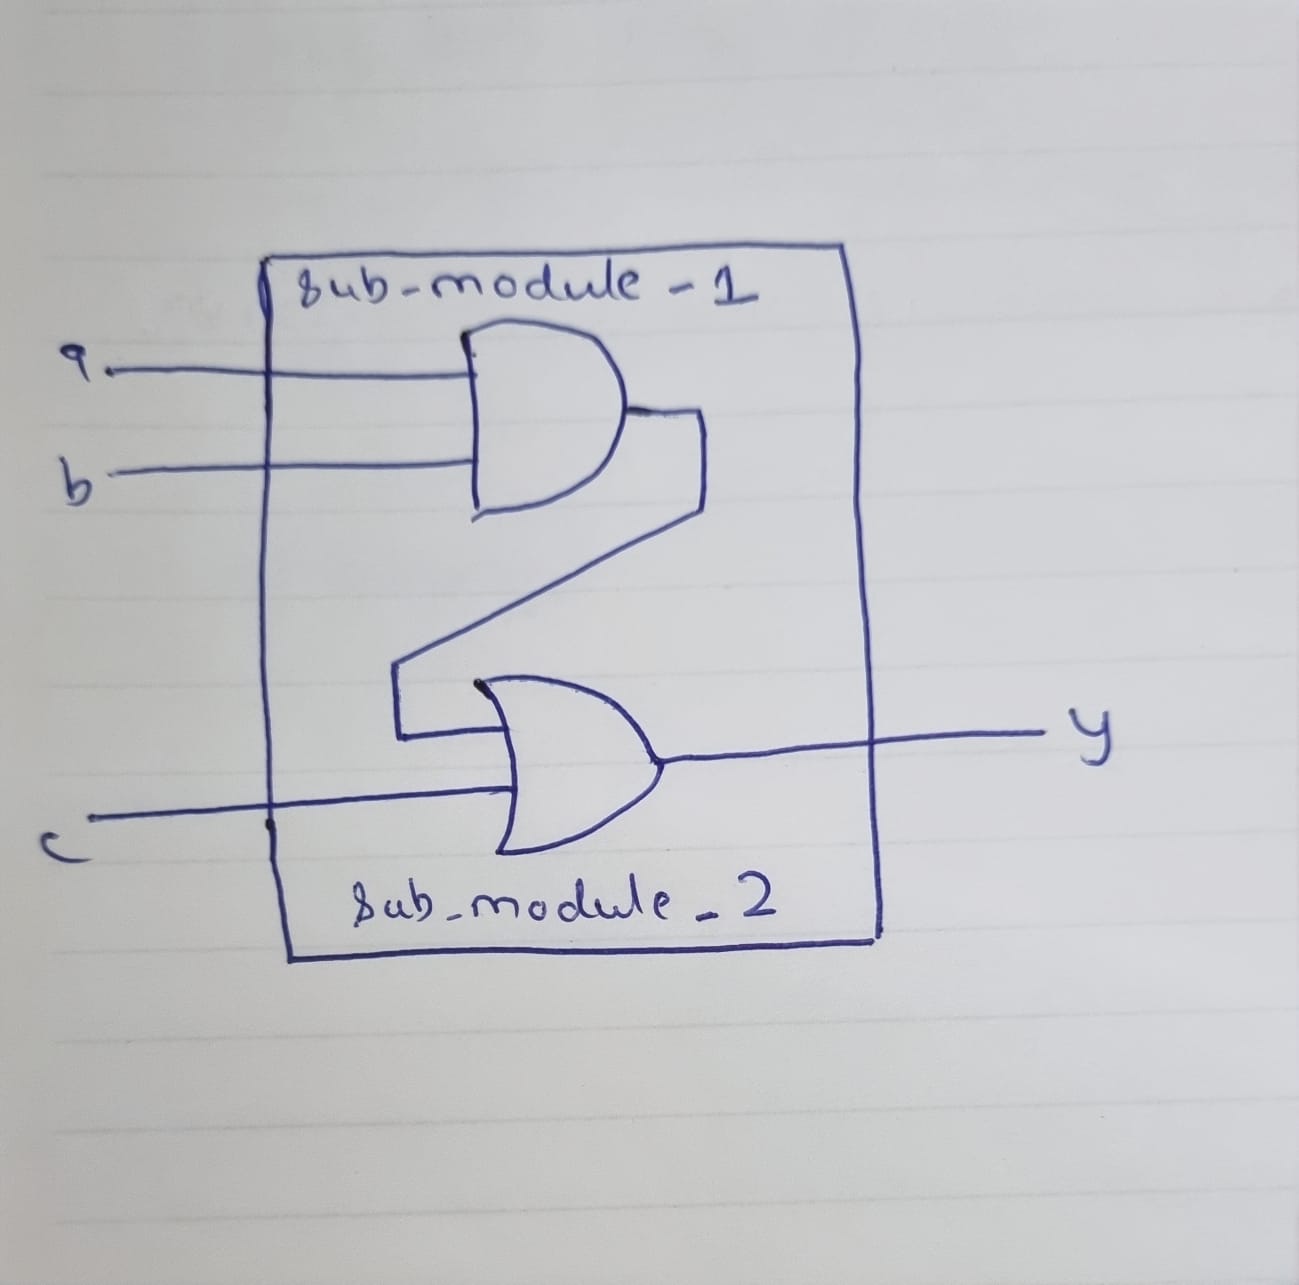 sub-module-1
a
b
c
y
sub-module-2